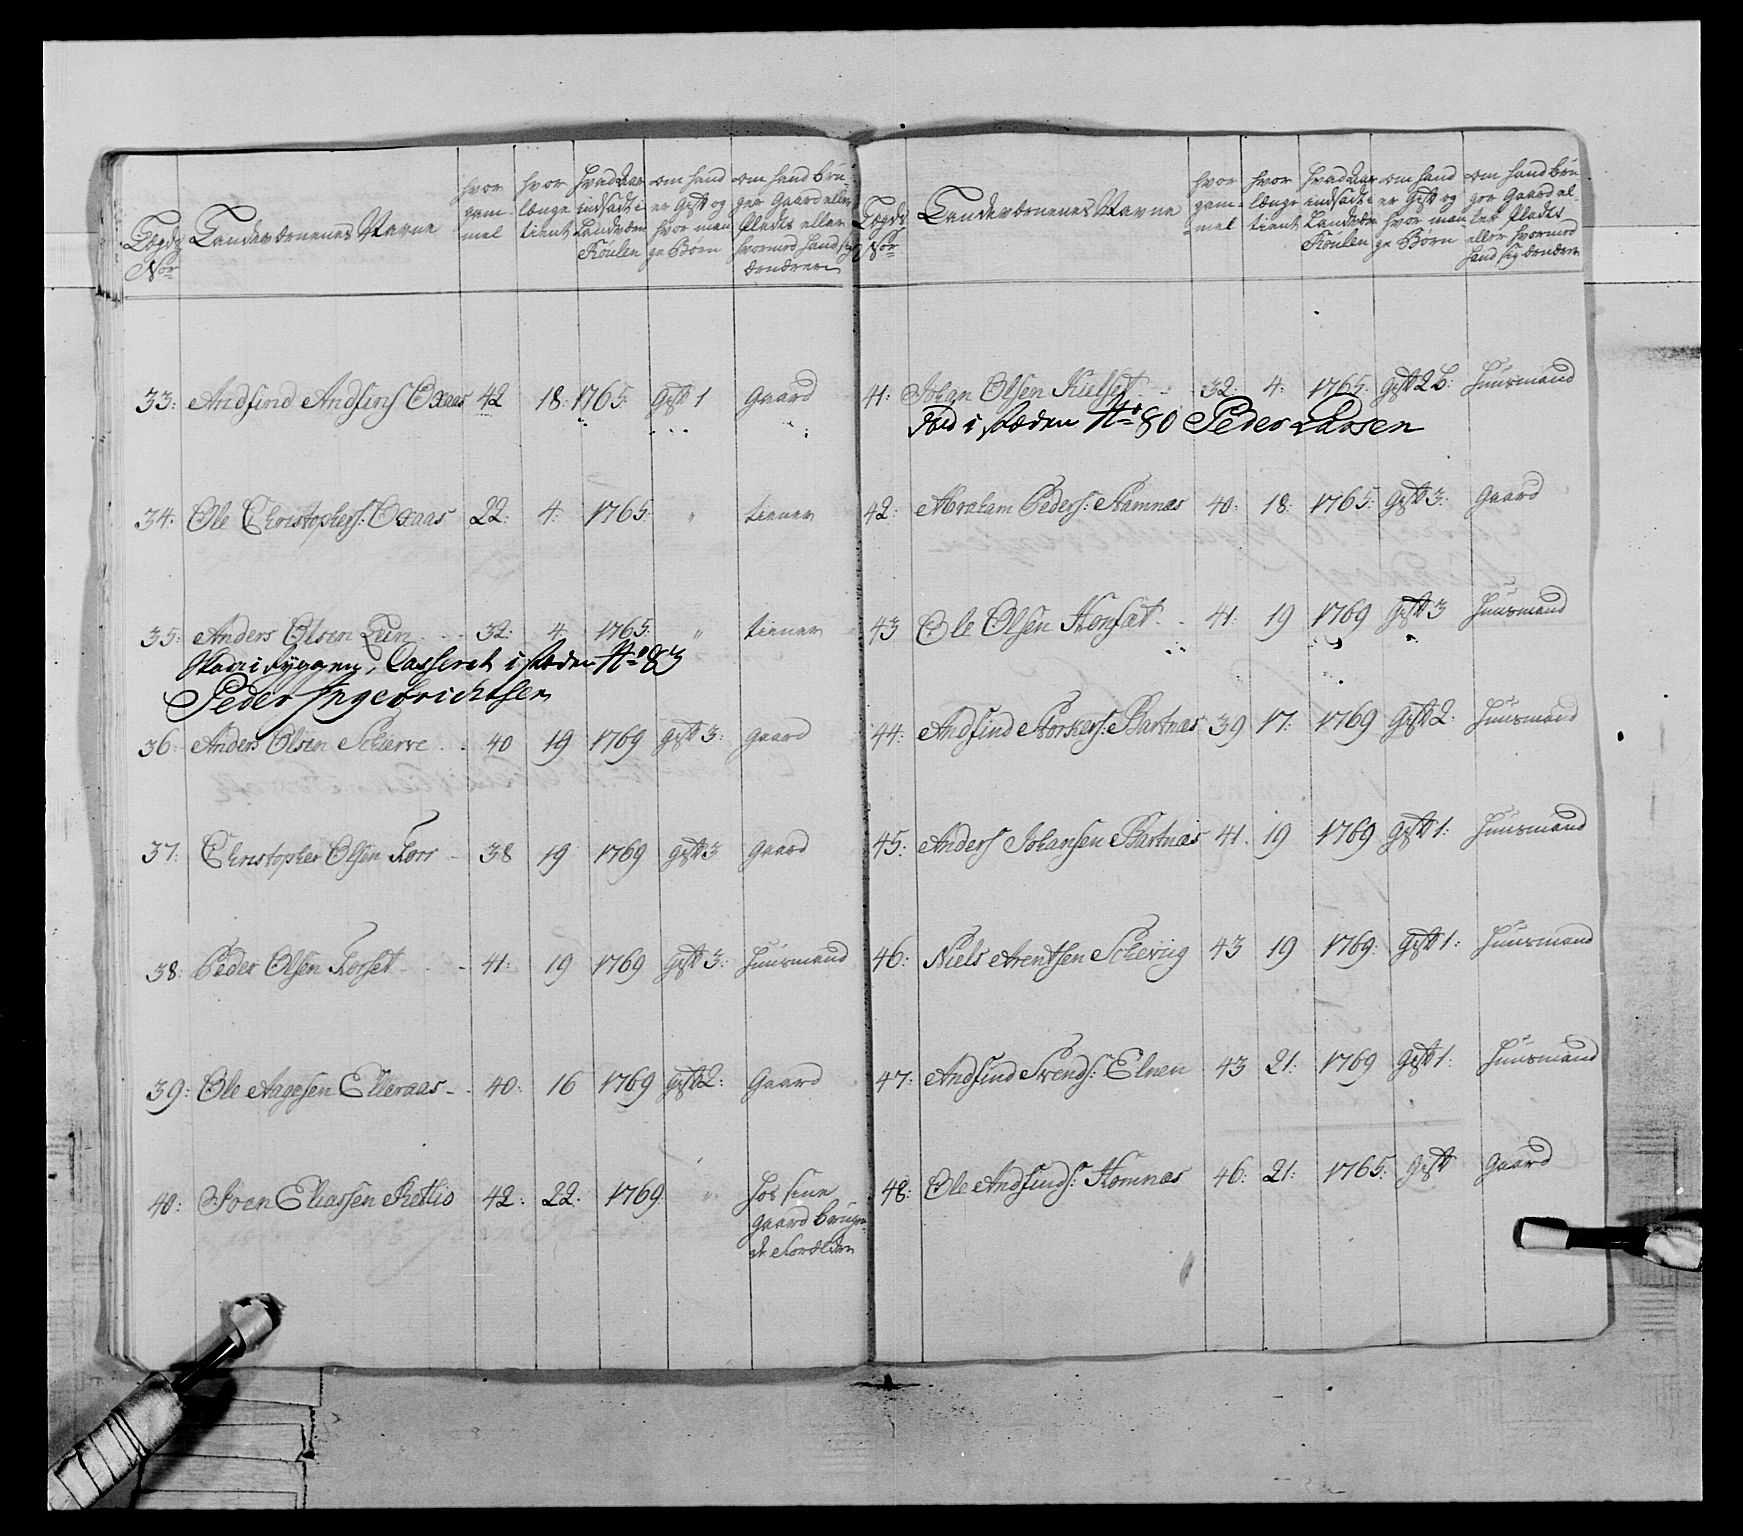 Lægds Nor
Landeværnenes Navne
hvor gam- mel
hvor længe tient
hvad Aar indsadt i Landværn Roulen
om hand er Gift og hvor man ge Børn
om hand bru- ger Gaard eller Pladts eller hvormed hand sig ærnærer
33: Andfind Andfins Oxaas 42 18: 1765: Gift 1 Gaard
34. Ole Christophers: Oxaas 22: 4: 1765: " tiener
35: Anders Olsen Lun 32: 4 1765: " tiener
i Ryggen, Casseret i stæden No 83
Peder Ingebrichtsen
36: Anders Olsen Schierve 40 19 1769 Gift 3: Gaard
37: Christopher Olsen Korr 38 19 1769 Gift 3 Gaard
38: Peder Olsen Korset 41: 19 1769 Gift 3: Huusmand
39: Ole Aagesen Elleraas 40: 16 1769 Gift 2: Gaard
40: Sven Eliassen 42: 22: 1769: " hos sine
gaard brugen-
de Forældre
Lægds Nor
Landeværnenes Navne
hvor gam- mel
hvor længe tient
hvad Aar indsadt i Landværn Roulen
om hand er Gift og hvor man ge Børn
om hand bru ger Gaard el- ler Pladts eller hvormed hand sig ærnærer
41: Johan Olsen 32: 4: 1765: Gift 2 b: Huusmand
død i stæden No 80 Peder Larsen
42: Abraham Peders: Stamnæs 40: 18: 1765: Gift 3: Gaard
43 Ole Olsen 41: 19 1769 Gift 3 Huusmand
44: Andfind Storkers: Bartnæs 39 17: 1769 Gift 2: Huusmand
45: Anders Johansen Bartnæs 41. 19 1769 Gift 1: Huusmand
46: Niels Arentsen 43 19 1769: Gift 1: Huusmand
47: Andfind Svends: Elnen 43 21: 1769 Gift 1: Huusmand
48: Ole Andfinds: Homnæs 46: 21: 1765: Gift Gaard